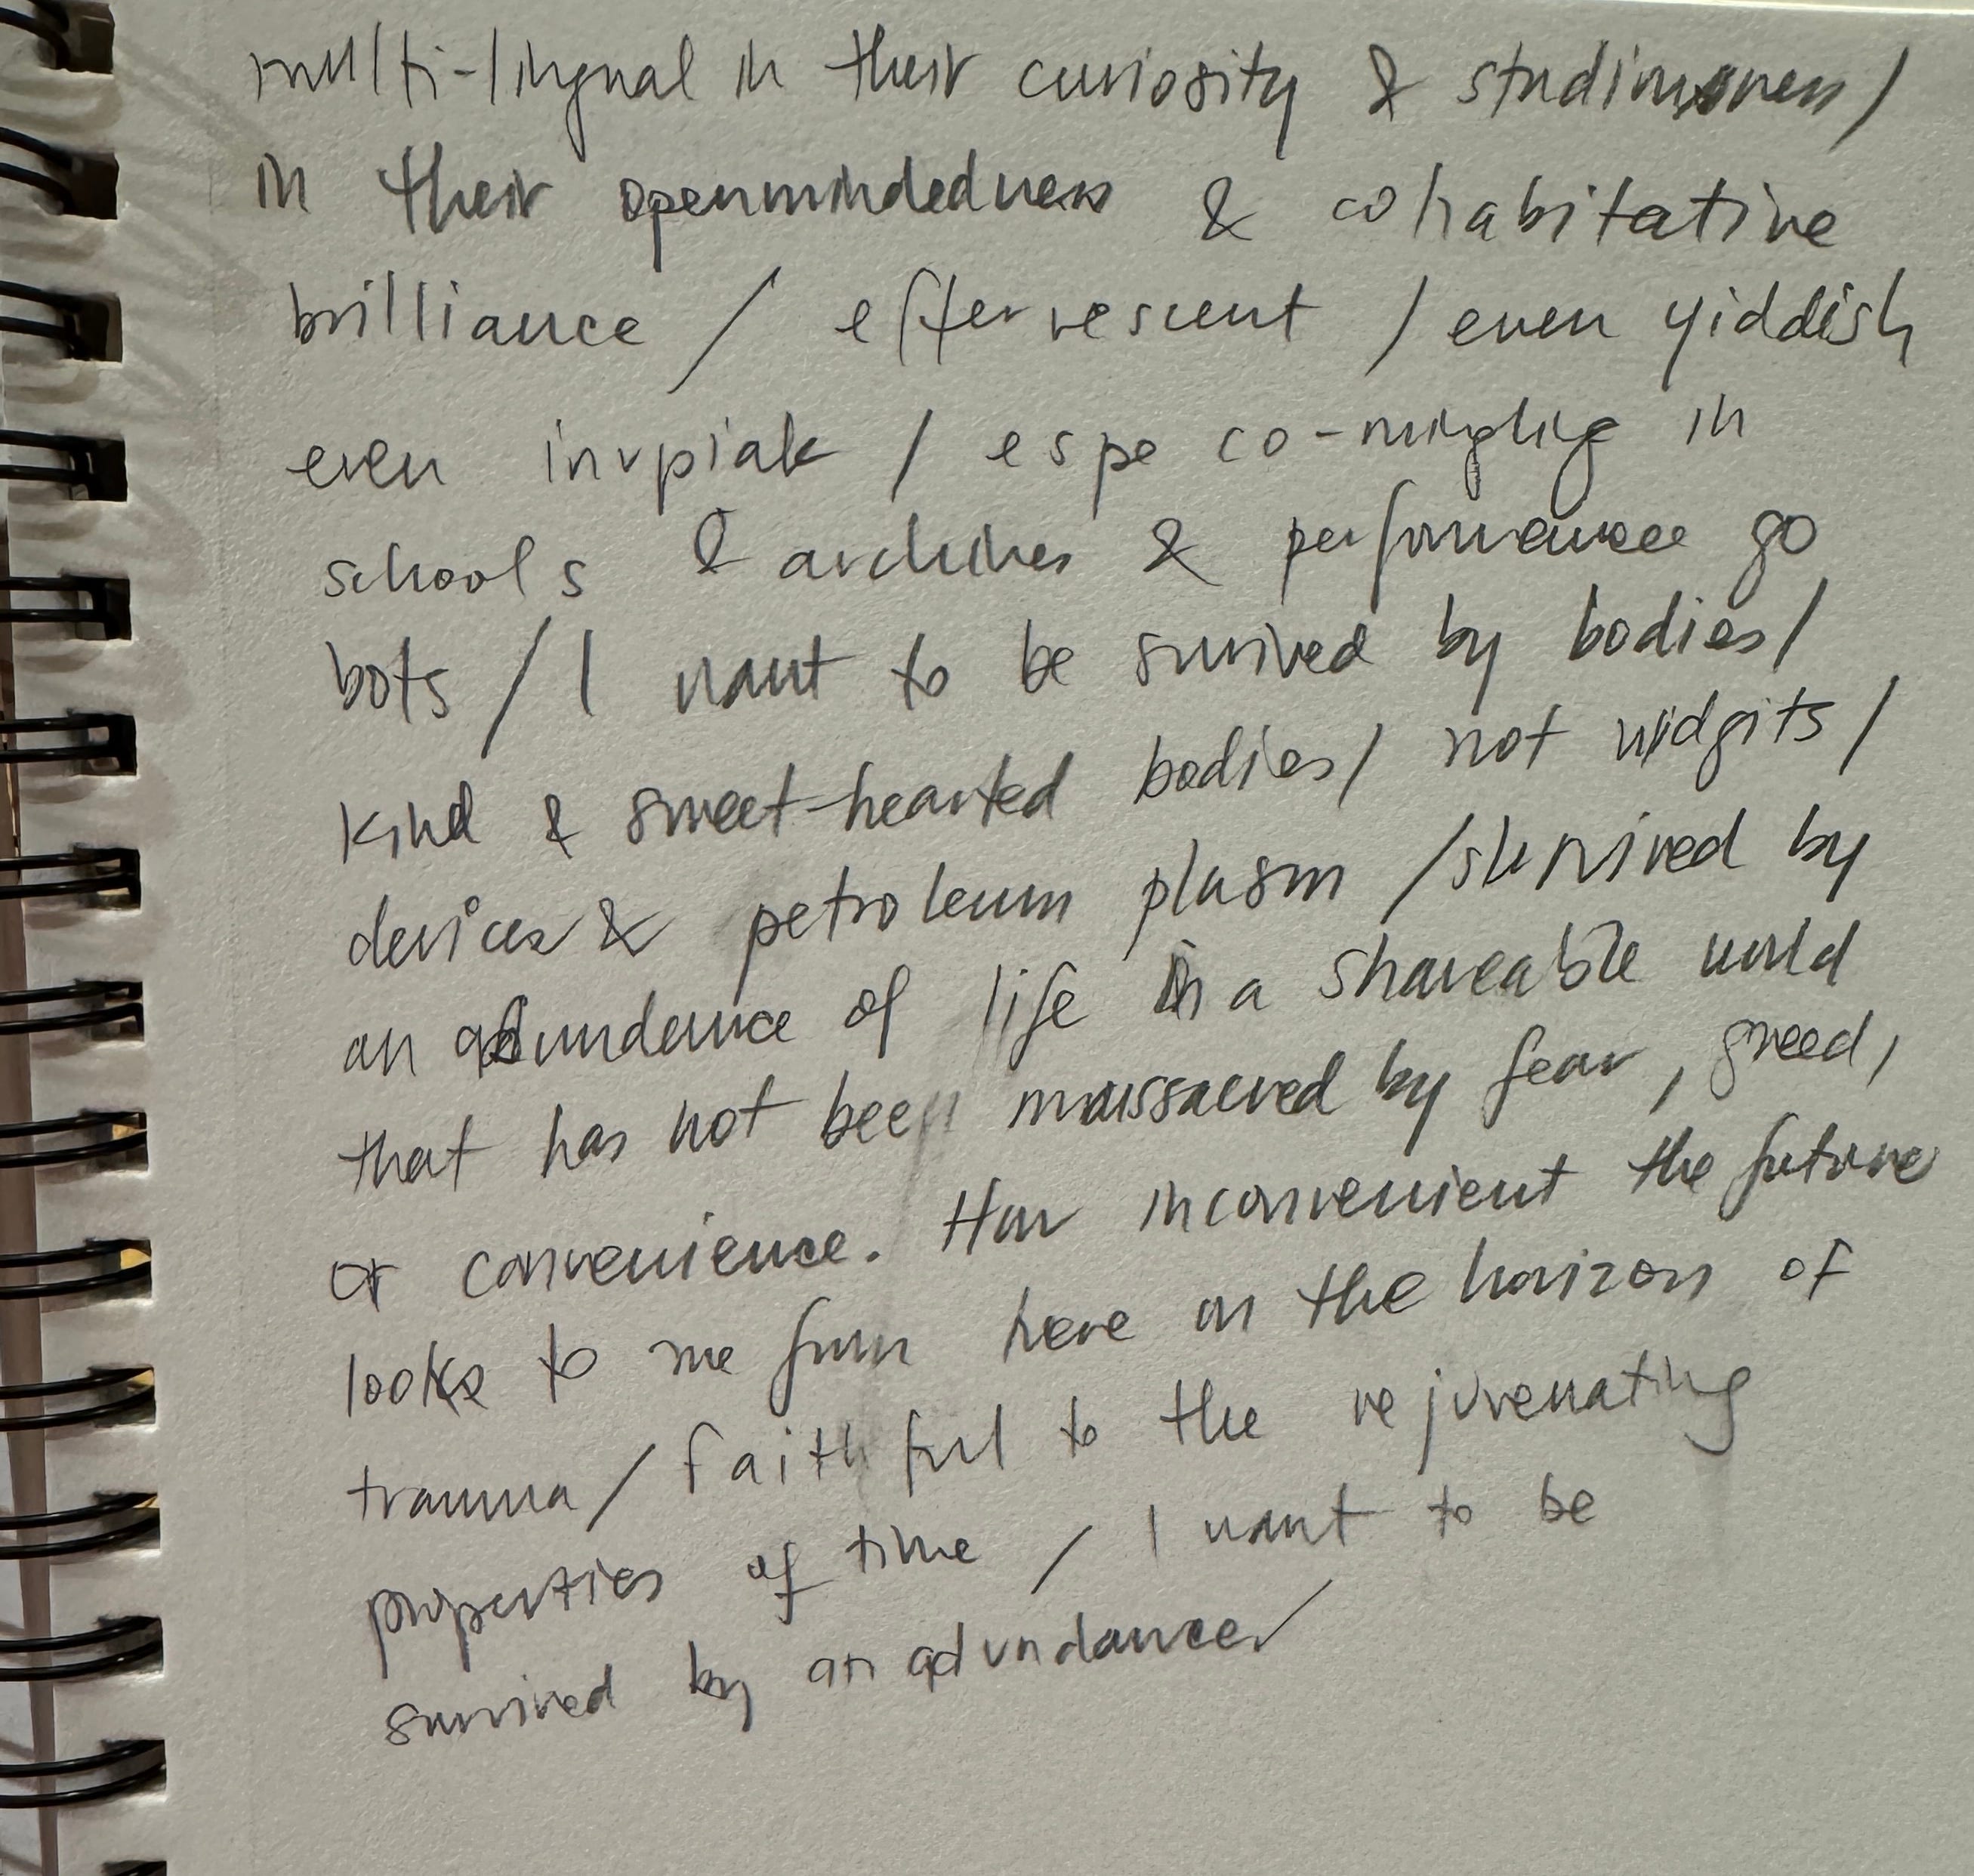 multi-lingual in their curiosity & studiousness /
in their openmindedness & cohabitative
brilliance / effervescent / even yiddish
even inupiak / espe co-mingling in
schools & archives & performance go
bots / I want to be survived by bodies /
kind & sweet-hearted bodies / not widgits /
devices & petroleum plasm / survived by
an abundance of life in a shareable world
that has not been massacred by fear, greed,
or convenience. How inconvenient the future
looks to me from here on the horizon of
trauma / faithful to the rejuvenating
properties of time / I want to be
survived by an adundance /